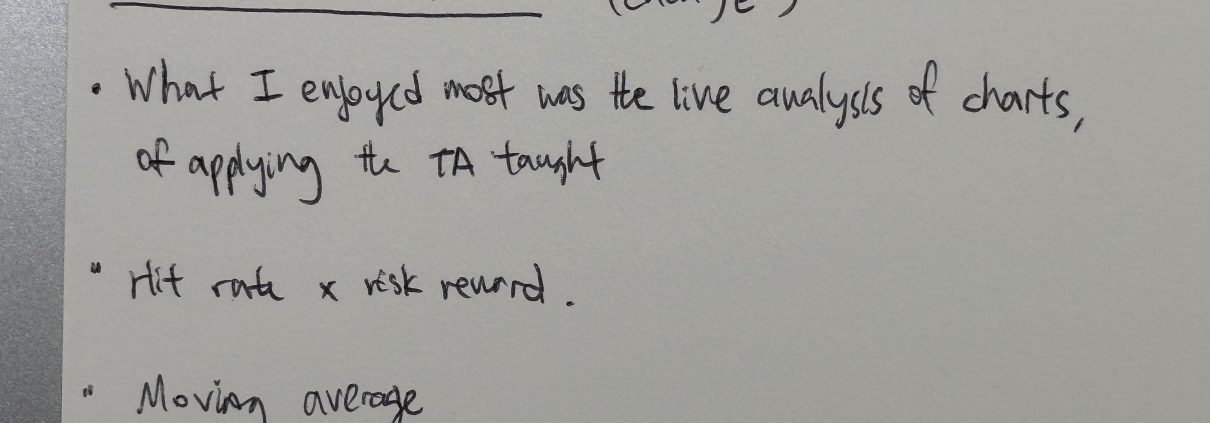 • What I enjoyed most was the live analysis of charts,
of applying the TA taught
" Hit rate x risk reward.
" Moving average